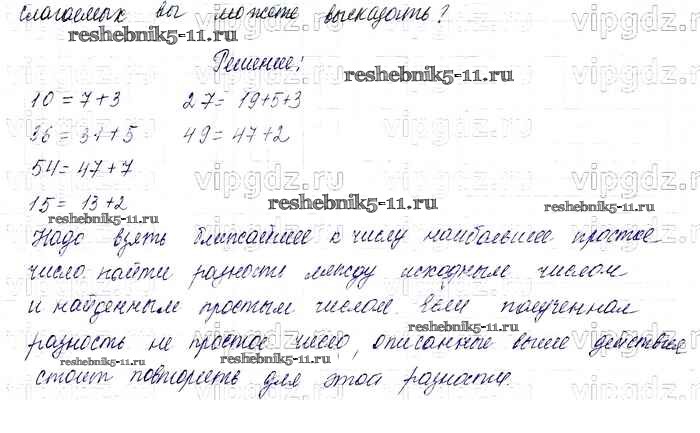 слагаемых вы можете высказать?
Решение:
10 = 7 + 3
27 = 19+5+3
36 = 31 + 5
49 = 47 + 2
54 = 47 + 7
15 = 13 + 2
Надо взять ближайшее к числу наибольшее простое
число найти разность между исходным числом
и найденным простым числом. Если полученная
разность не простое число, описанное выше действия
стоит повторить для этой разности.
reshebnik5-11.ru
reshebnik5-11.ru
reshebnik5-11.ru
reshebnik5-11.ru
reshebnik5-11.ru
reshebnik5-11.ru
vipgdz.ru
vipgdz.ru
vipgdz.ru
vipgdz.ru
vipgdz.ru
vipgdz.ru